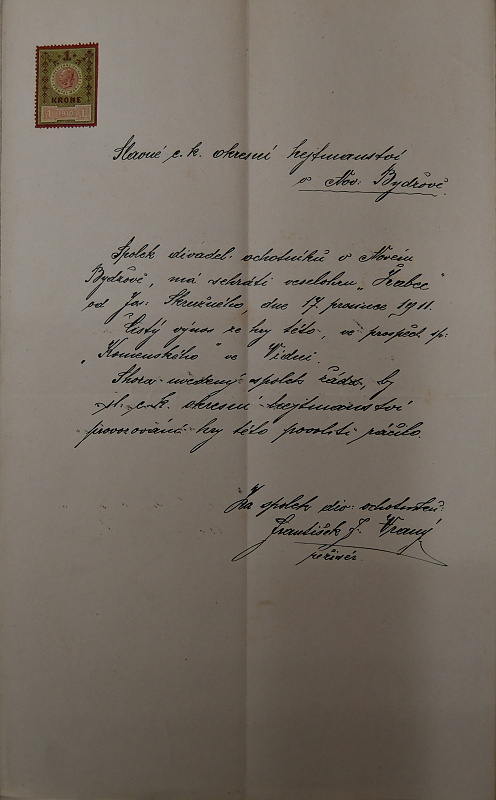 1
KRONE
1 1910 1
Slavné c. k. okresní hejtmanství
v Nov: Bydžově.
Spolek divadel. ochotníků v Novém
Bydžově, má sehráti veselohru „Hrabec"
od Jos: Skružného, dne 17. prosince 1911.
Čistý výnos ze hry této, ve prospěch sp:
„Komenského" ve Vídni.
Shora uvedený spolek žádá, by
sl. c. k. okresní hejtmanství
provozování hry této povoliti ráčilo.
Za spolek div: ochotníků:
František J. Vraný
režisér